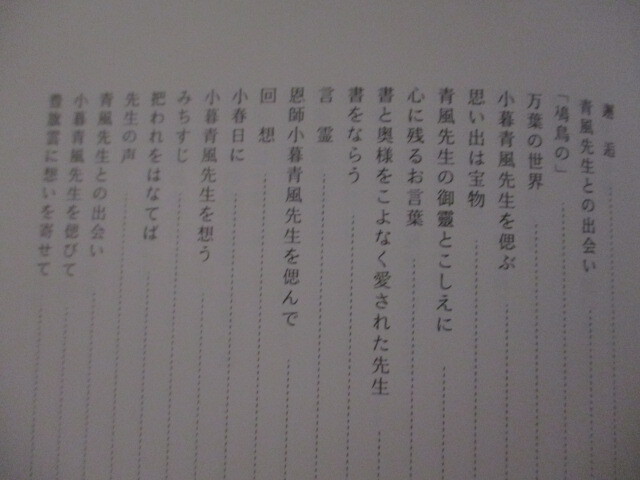 邂逅
青風先生との出会い
「鳰鳥の」
万葉の世界
小暮青風先生を偲ぶ
思い出は宝物
青風先生の御靈とこしえに
心に残るお言葉
書と奥様をこよなく愛された先生
書をならう
言霊
恩師小暮青風先生を偲んで
回想
小春日に
小暮青風先生を想う
みちすじ
把われをはなてば
先生の声
青風先生との出会い
小暮青風先生を偲びて
豊旗雲に想いを寄せて